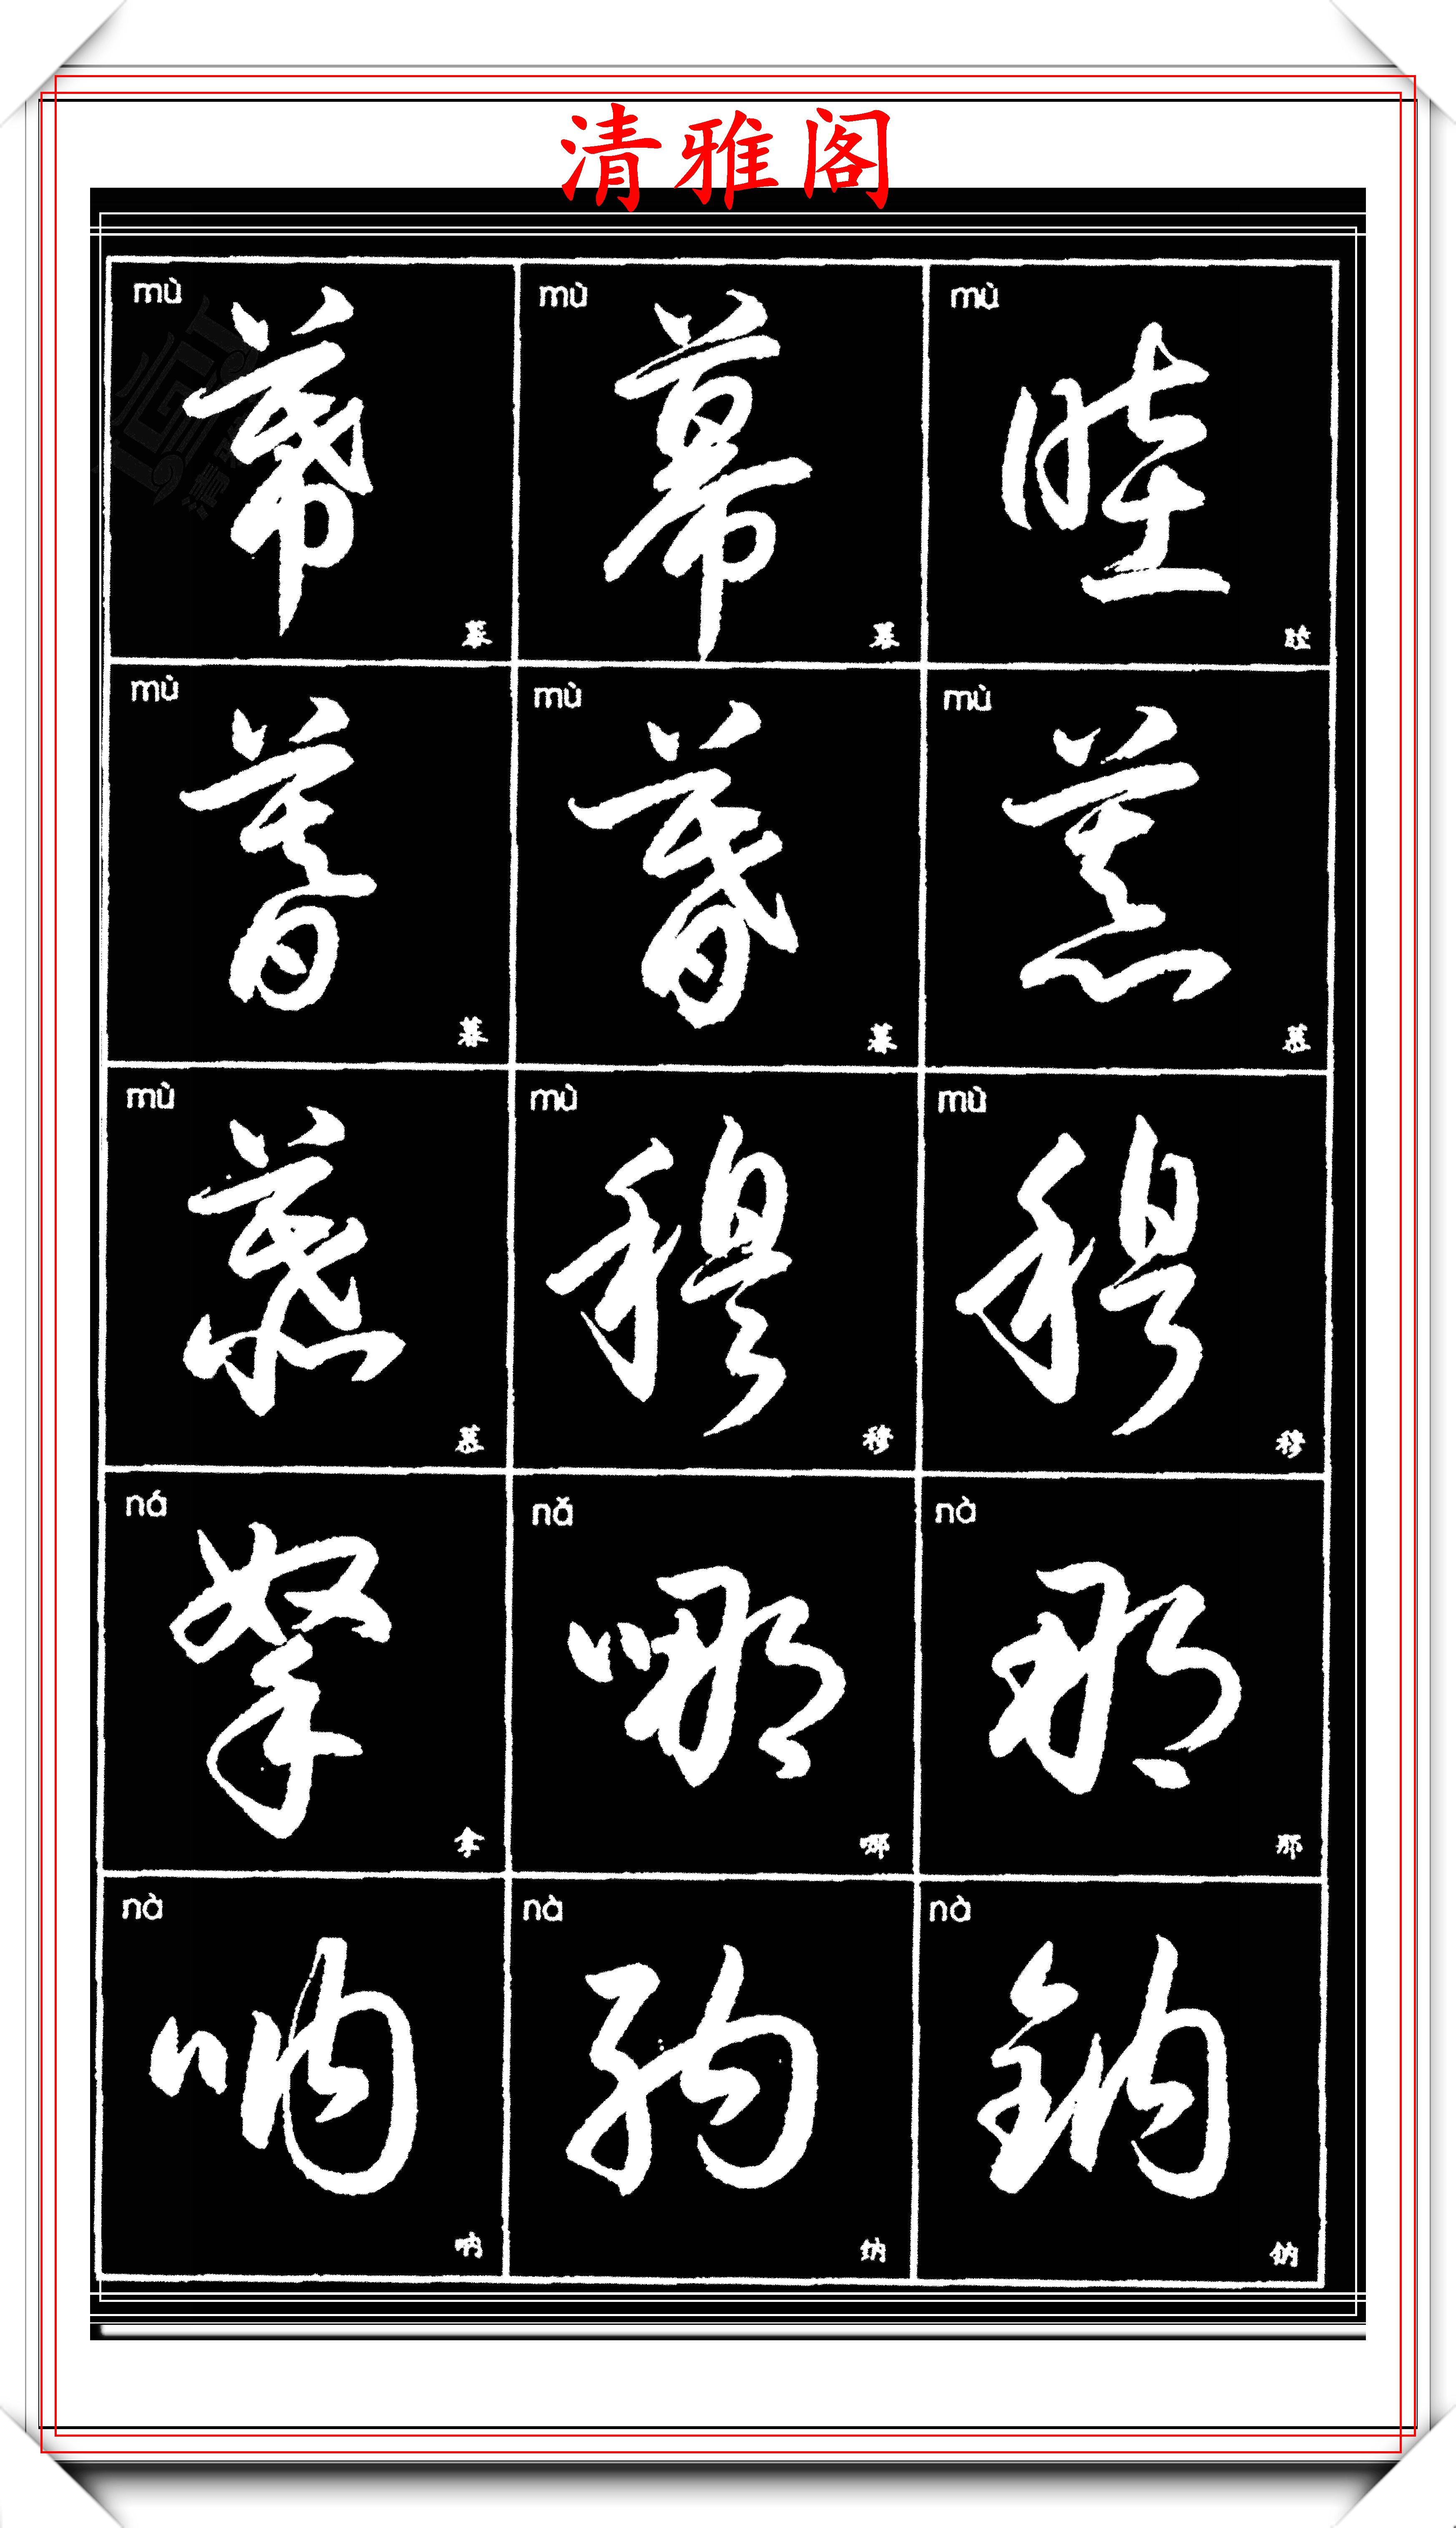 清雅阁
mù mù mù
幕 幕 睦
幕 幕 睦
mù mù mù
暮 暮 慕
暮 暮 慕
mù mù mù
慕 穆 穆
慕 穆 穆
ná nǎ nà
拏 哪 那
拿 哪 那
nà nà nà
吶 納 鈉
呐 纳 钠